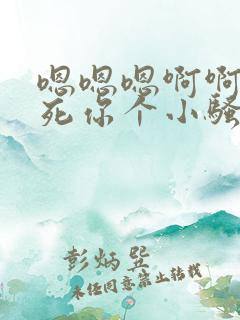 嗯嗯嗯啊啊
死你个小骚
彭炳巽
未经同意禁止转载